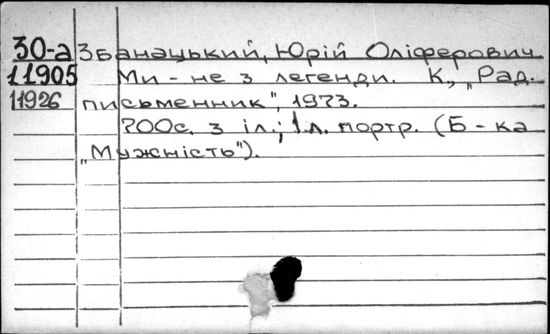 30-а Збанацький, Юрій Оліферович.
11905 Ми - не з легенди. К., „Рад.
11926 письменник", 1973.
700с. з іл.; 1 л. портр. (Б - ка
„Мужність").